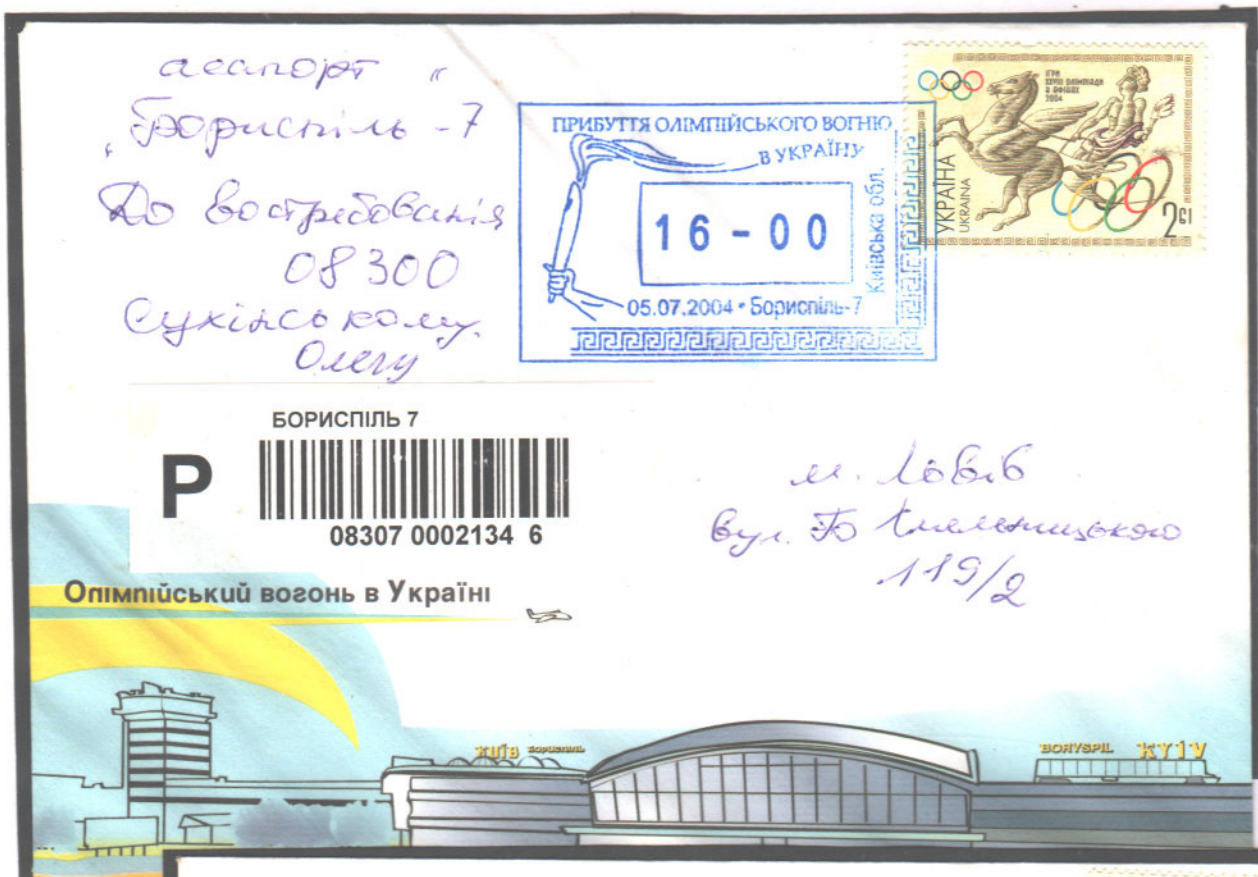 аеапорт "
„Бориспіль-7
До востребованія
08300
Сухінському
Олегу
ПРИБУТТЯ ОЛІМПІЙСЬКОГО ВОГНЮ
В УКРАЇНУ
16-00
Київська обл.
05.07.2004 • Бориспіль-7
ІГРИ
XXVIII ОЛІМПІАДИ
В АФІНАХ
2004
УКРАЇНА
UKRAINA
2 61
БОРИСПІЛЬ 7
Р
08307 0002134 6
м. Львів
вул. Б Хмельницького
119/2
Олімпійський вогонь в Україні
КИЇВ БОРИСПІЛЬ
BORYSPIL KYIV